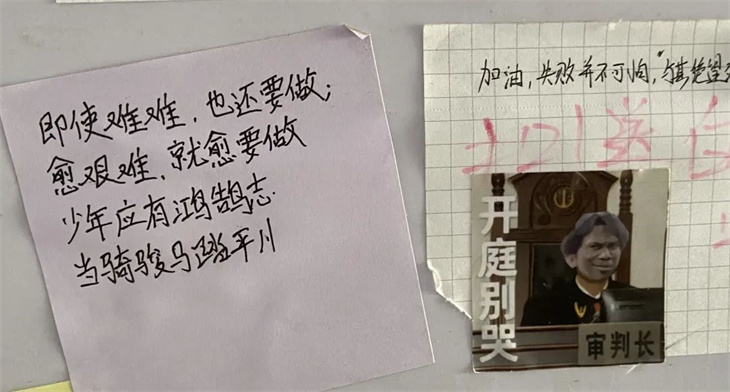 即使难难，也还要做；
愈艰难，就愈要做
少年应有鸿鹄志
当骑骏马踏平川
加油，失败并不可怕，与其绝望
开庭别哭
审判长